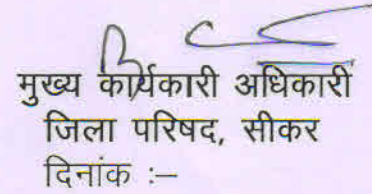 मुख्य कार्यकारी अधिकारी
जिला परिषद, सीकर
दिनांक :–